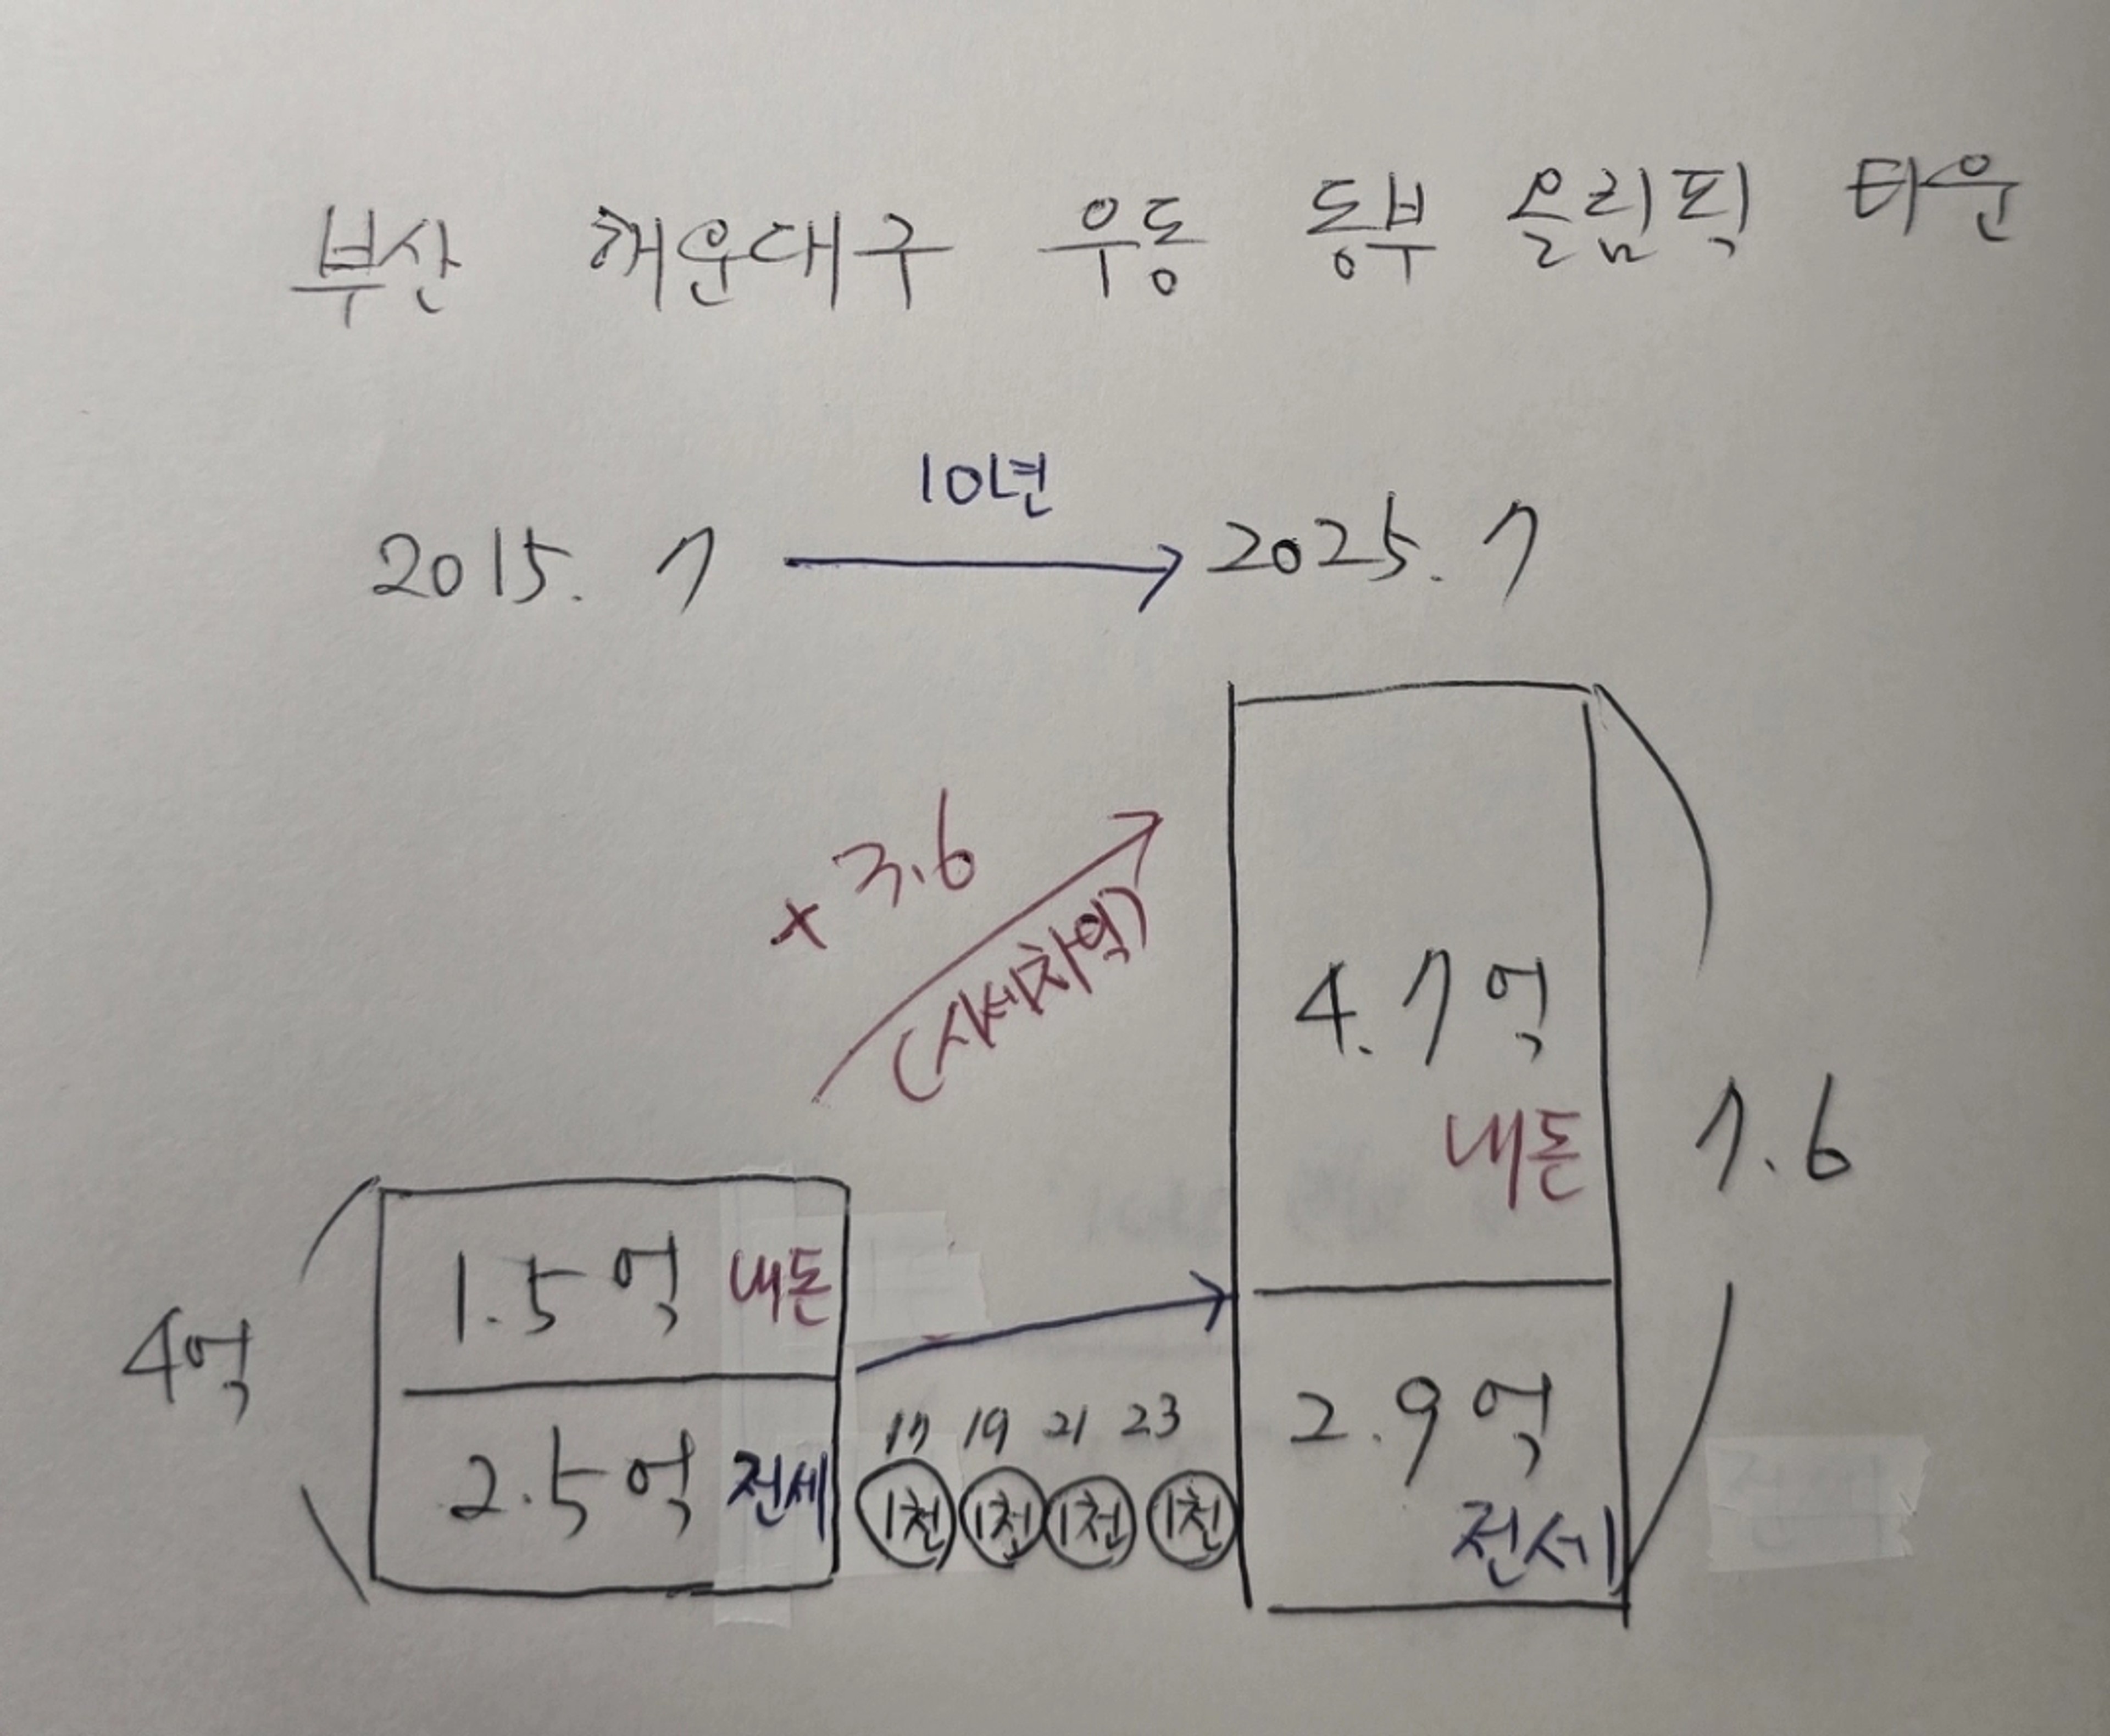 부산 해운대구 우동 동부 올림픽 타운
10년
2015. 7 → 2025. 7
+ 3.6
(시세차익)
4.7억
내돈
7.6
1.5억 내돈
4억
17 19 21 23
2.9억
2.5억 전세 1천 1천 1천 1천
전세